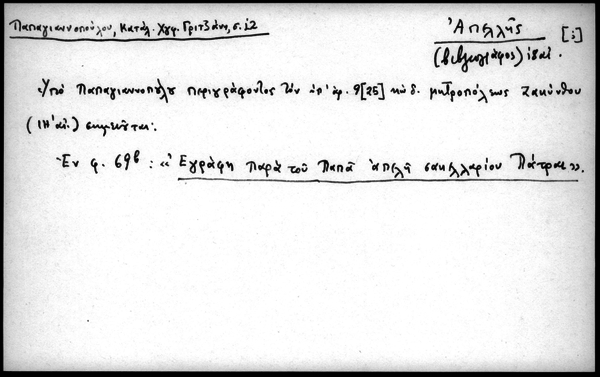 Παπαγιαννοπούλου, Κατάλ. Χγφ. Γριτζάνη, σ. 12
Ἀπελλῆς [1]
(βιβλιογράφος) ιη αἰ.
Ὑπό Παπαγιαννοπούλου περιγράφοντος τὸν ὑπ' ἀρ. 9[25] κώδ. μητροπόλεως Ζακύνθου
(ΙΗ' αἰ.) σημειοῦται:
Ἐν φ. 69β : «Ἐγράφη παρὰ τοῦ Παπᾶ ἀπελῆ σακελλαρίου Πάτρας».